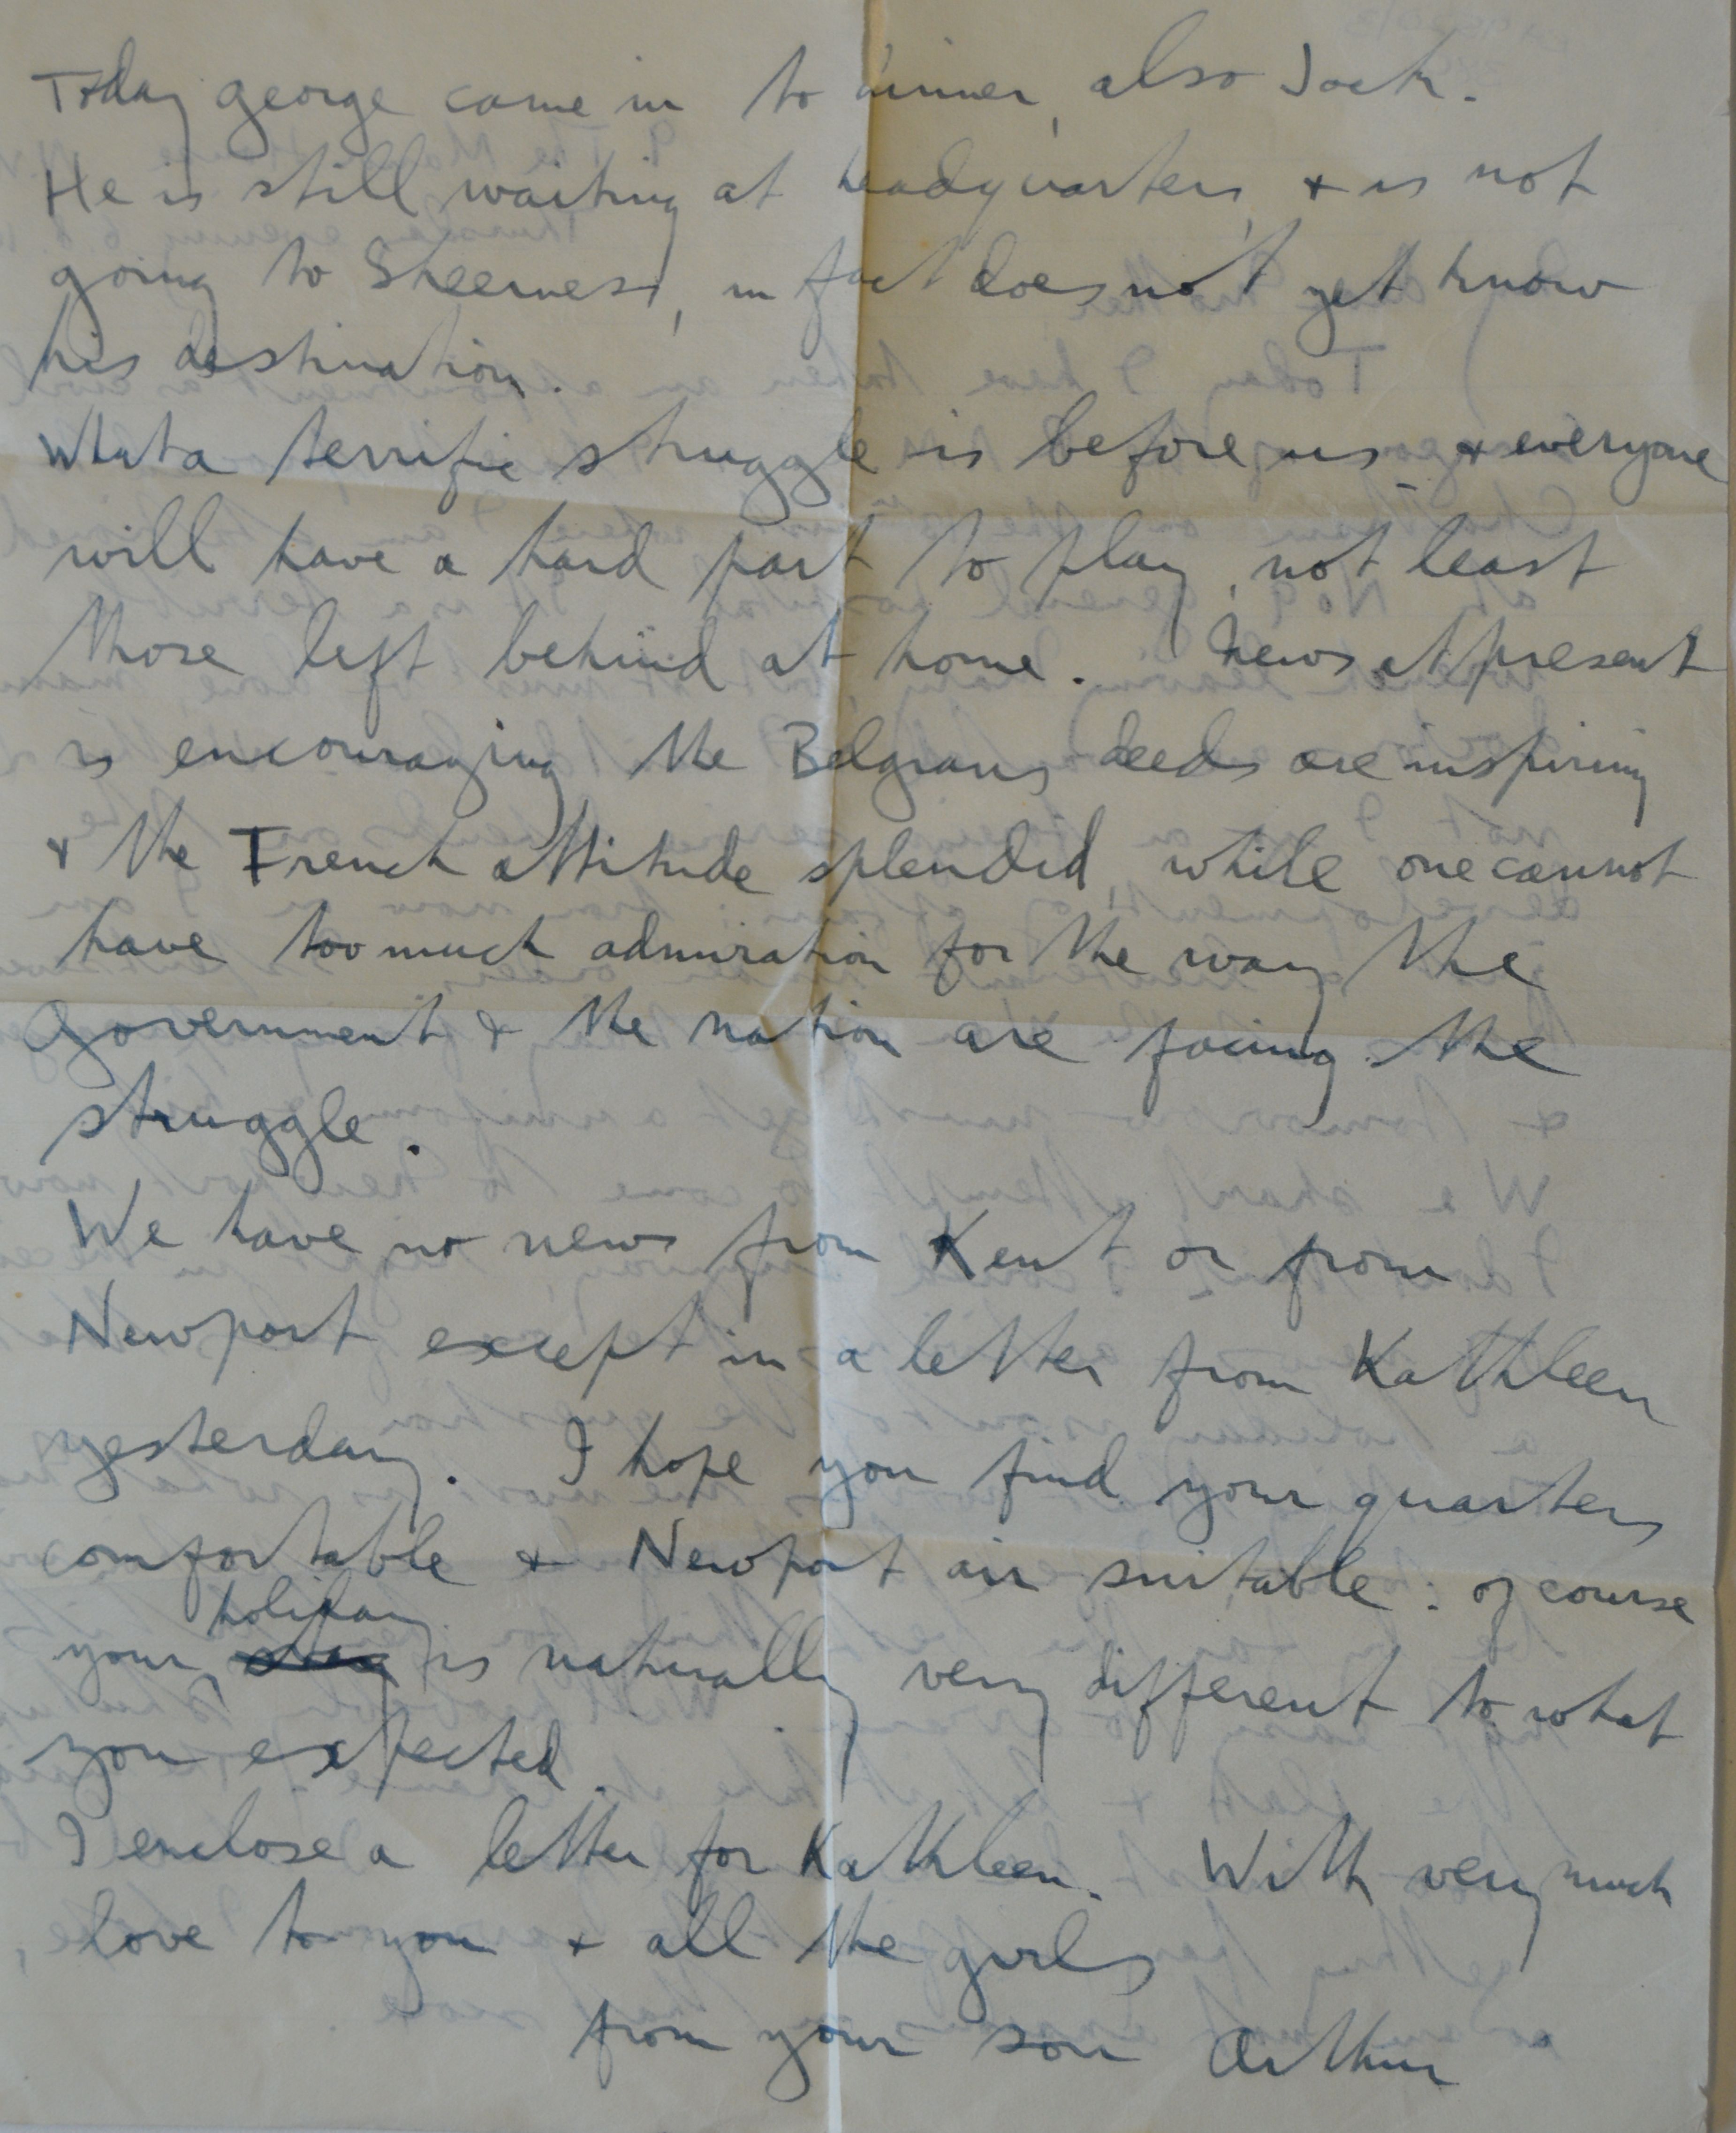 Today george came in to dinner, also Jack.
He is still waiting at headquarters, & is not
going to Sheerness, in fact does not yet know
his destination.
What a terrific struggle is before us & everyone
will have a hard part to play, not least
those left behind at home. News at present
is encouraging the Belgians deeds are inspiring
& the French attitude splendid, while one cannot
have too much admiration for the way the
Government & the nation are facing the
struggle.
We have no news from Kent or from
Newport except in a letter from Kathleen
yesterday. I hope you find your quarters
comfortable & Newport air suitable: of course
holiday
your is naturally very different to what
you expected.
I enclose a letter for Kathleen. With very much
love to you & all the girls
from your son Arthur